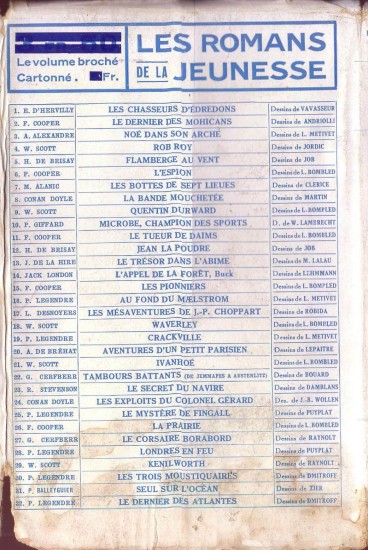 LES ROMANS
DE LA JEUNESSE
Le volume broché
Cartonné. Fr.
1. E. D'HERVILLY LES CHASSEURS D'ÉDREDONS Dessins de VAVASSEUR
2. F. COOPER LE DERNIER DES MOHICANS Dessins de ANDRIOLLI
3. A. ALEXANDRE NOÉ DANS SON ARCHE Dessins de L. METIVET
4. W. SCOTT ROB ROY Dessins de JORDIC
5. H. DE BRISAY FLAMBERGE AU VENT Dessins de JOB
6. F. COOPER L'ESPION Dessins de L. ROMBLED
7. M. ALANIC LES BOTTES DE SEPT LIEUES Dessins de CLERICE
8. CONAN DOYLE LA BANDE MOUCHETÉE Dessins de MARTIN
9. W. SCOTT QUENTIN DURWARD Dessins de L. ROMBLED
10. P. GIFFARD MICROBE, CHAMPION DES SPORTS D. de W. LAMBRECHT
11. F. COOPER LE TUEUR DE DAIMS Dessins de L. ROMBLED
12. H. DE BRISAY JEAN LA POUDRE Dessins de JOB
13. J. DE LA HIRE LE TRÉSOR DANS L'ABIME Dessins de M. LALAU
14. JACK LONDON L'APPEL DE LA FORÊT, Buck Dessins de
15. F. COOPER LES PIONNIERS Dessins de L. ROMBLED
16. P. LEGENDRE AU FOND DU MÆLSTROM Dessins de L. METIVET
17. L. DESNOYERS LES MÉSAVENTURES DE J.-P. CHOPPART Dessins de ROBIDA
18. W. SCOTT WAVERLEY Dessins de L. ROMBLED
19. P. LEGENDRE CRACKVILLE Dessins de L. METIVET
20. A. DE BRÉHAT AVENTURES D'UN PETIT PARISIEN Dessins de LEPAITRE
21. W. SCOTT IVANHOÉ Dessins de L. ROMBLED
22. G. CERFBERR TAMBOURS BATTANTS (DE JEMMAPES A AUSTERLITZ) Dessins de BOUARD
23. R. STEVENSON LE SECRET DU NAVIRE Dessins de DAMBLANS
24. CONAN DOYLE LES EXPLOITS DU COLONEL GÉRARD Des. de J.-B. WOLLEN
25. P. LEGENDRE LE MYSTÈRE DE FINGALL Dessins de PUYPLAT
26. F. COOPER LA PRAIRIE Dessins de L. ROMBLED
27. G. CERFBERR LE CORSAIRE BORABORD Dessins de RAYNOLT
28. P. LEGENDRE LONDRES EN FEU Dessins de PUYPLAT
29. W. SCOTT KENILWORTH Dessins de RAYNOLT
30. P. LEGENDRE LES TROIS MOUSTIQUAIRES Dessins de DMITROFF
31. P. BALLEYGUIER SEUL SUR L'OCÉAN Dessins de TIER
32. P. LEGENDRE LE DERNIER DES ATLANTES Dessins de DMITROFF